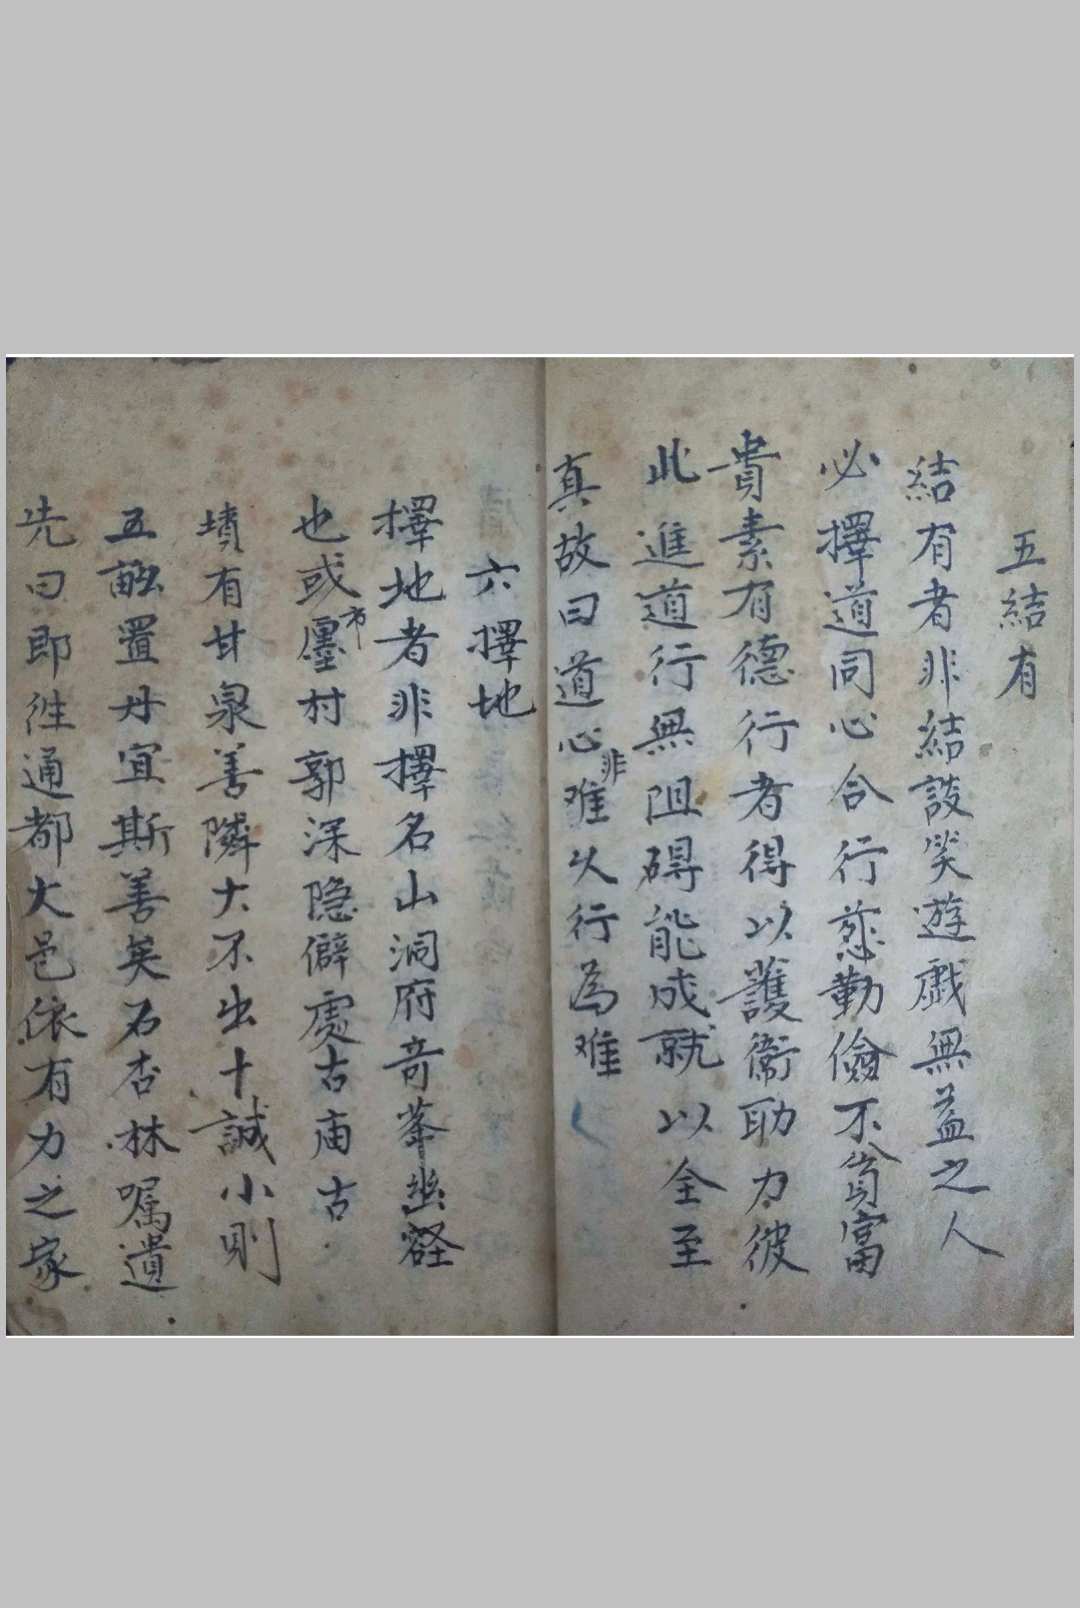 五結有
結有者非結談笑遊戲無益之人
必擇道同心合行慈勤儉不貪富
貴素有德行者得以護衛助力彼
此進道行無阻碍能成就以全至
真故曰道心非难以行為难
六擇地
擇地者非擇名山洞府奇峯幽壑
也或市廛村郭深隐僻處古庙古
墳有甘泉善隣大不出十誠小則
五畝置丹宜斯善矣石杏林嘱遺
先曰即往通都大邑依有力之家